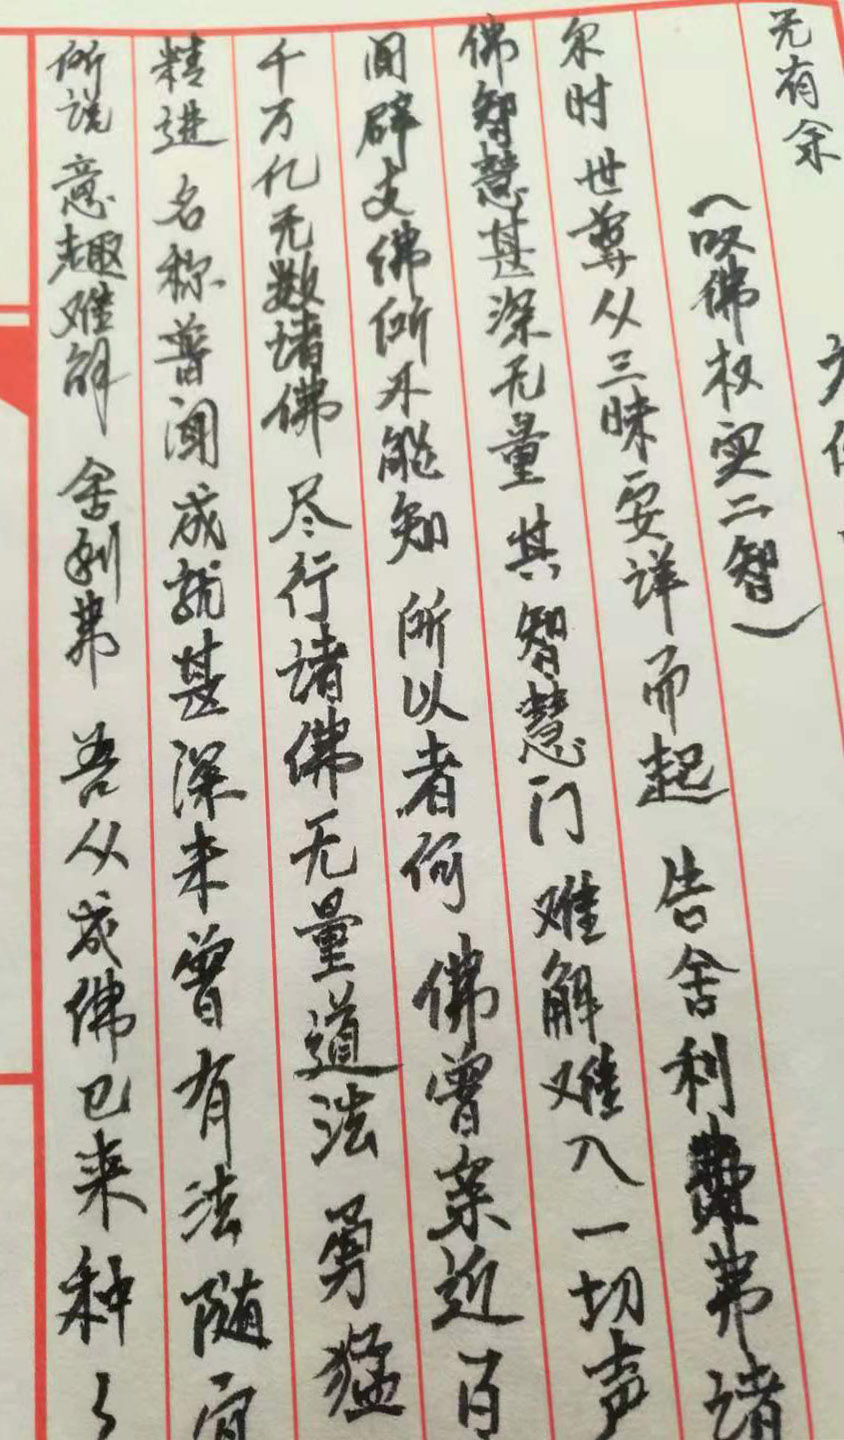 无有余
（叹佛权实二智）
尔时世尊从三昧安详而起 告舍利弗诸
佛智慧甚深无量 其智慧门 难解难入 一切声
闻辟支佛所不能知 所以者何 佛曾亲近百
千万亿无数诸佛 尽行诸佛无量道法 勇猛
精进 名称普闻 成就甚深未曾有法 随宜
所说意趣难解 舍利弗 吾从成佛已来 种々